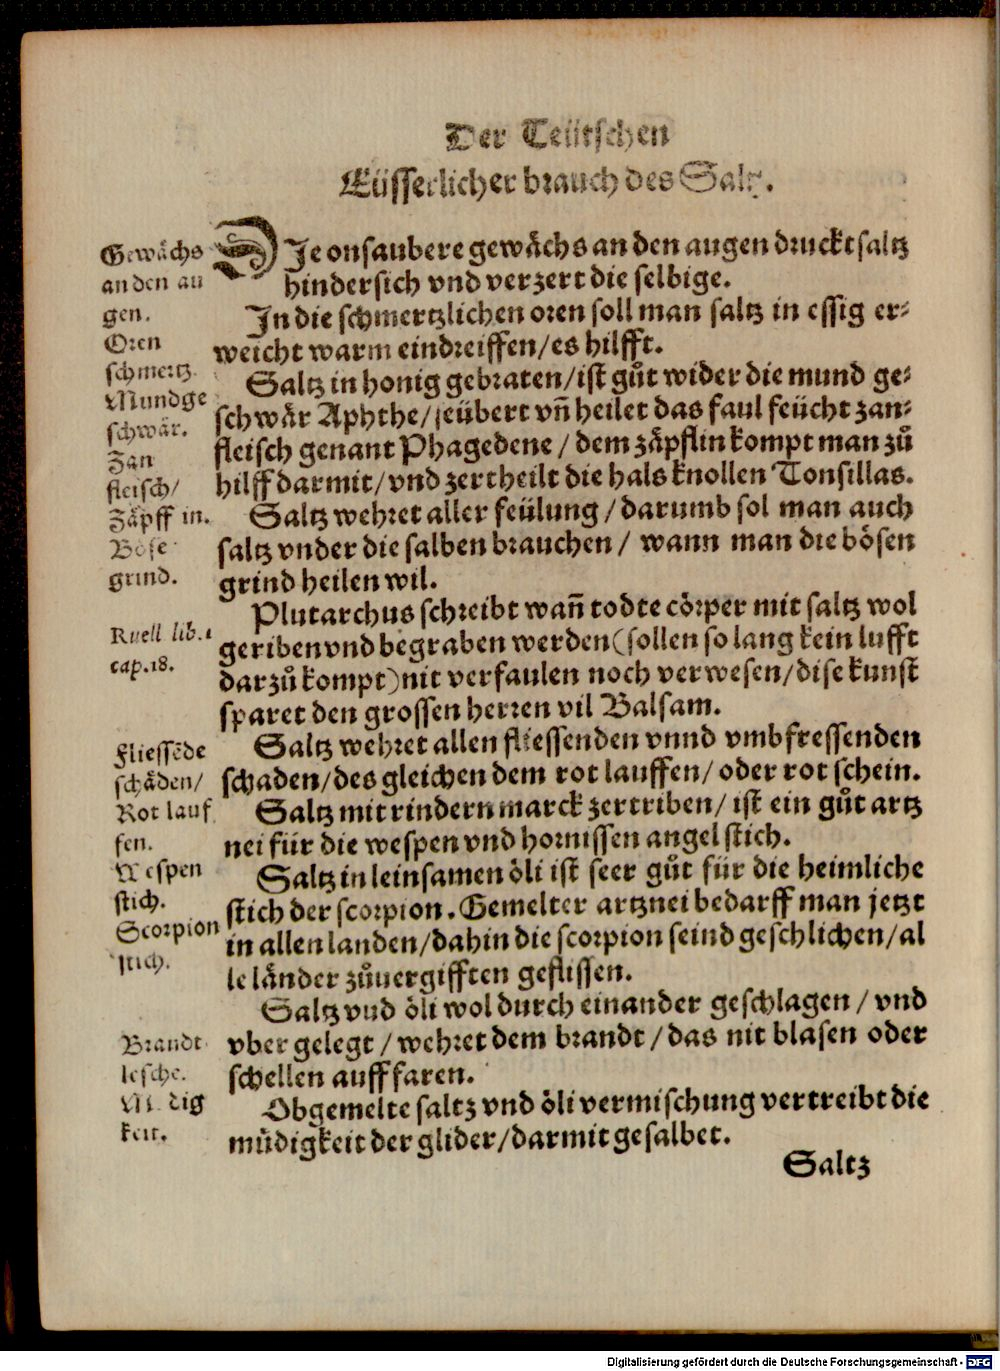 Der Teütschen
Eüsserlicher brauch des Saltz.
Gewächs
an den au
gen.
Oren
schmertz.
Mundge
schwär.
Zan
fleisch/
Zäpff in.
Böse
grind.
Ruell lib.1
cap.18.
Fliessēde
schäden/
Rot lauf
fen.
Wespen
stich.
Scorpion
stich.
Brandt
lesche.
keit.
DIe onsaubere gewächs an den augen druckt saltz
hindersich vnd verzert die selbige.
In die schmertzlichen oren soll man saltz in essig er-
weicht warm eindreiffen/es hilfft.
Saltz in honig gebraten/ist gůt wider die mund ge-
schwär Aphthe/seübert vñ heilet das faul feücht zan-
fleisch genant Phagedene / dem zäpflin kompt man zů
hilff darmit/vnd zertheilt die hals knollen Tonsillas.
Saltz wehret aller feülung / darumb sol man auch
saltz vnder die salben brauchen / wann man die bösen
grind heilen wil.
Plutarchus schreibt wañ todte cörper mit saltz wol
geriben vnd begraben werden(sollen so lang kein lufft
darzů kompt)nit verfaulen noch verwesen/dise kunst
sparet den grossen herren vil Balsam.
Saltz wehret allen fliessenden vnnd vmbfressenden
schaden/des gleichen dem rot lauffen/ oder rot schein.
Saltz mit rindern marck zertriben/ ist ein gůt artz
nei für die wespen vnd hornissen angel stich.
Saltz in leinsamen öli ist seer gůt für die heimliche
stich der scorpion. Gemelter artznei bedarff man jetzt
in allen landen/dahin die scorpion seind geschlichen/al
le länder zůuergifften geflissen.
Saltz vnd öli wol durch einander geschlagen / vnd
vber gelegt / wehret dem brandt / das nit blasen oder
schellen auff faren.
Obgemelte saltz vnd öli vermischung vertreibt die
müdigkeit der glider/darmit gesalbet.
Saltz
Digitalisierung gefördert durch die Deutsche Forschungsgemeinschaft - DFG